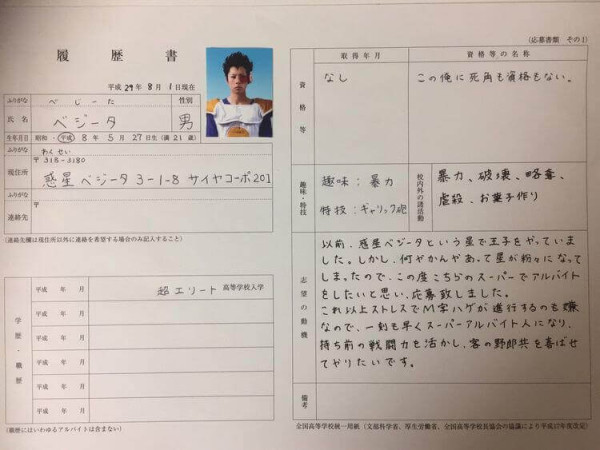 履歴書
平成29年 8月 1日現在
ふりがな べじーた 性別
氏名 ベジータ 男
生年月日 昭和・平成 8年 5月 27日生(満21歳)
ふりがな わくせい
〒318-3180
現住所 惑星ベジータ3-1-8 サイヤコーポ201
ふりがな
連絡先 〒
(連絡先欄は現住所以外に連絡を希望する場合のみ記入すること)
学歴・職歴
平成 年 月 超エリート 高等学校入学
平成 年 月
平成 年 月
平成 年 月
平成 年 月
平成 年 月
(履歴にはいわゆるアルバイトは含まない)
(応募書類 その1)
資格等
取得年月 資格等の名称
なし この俺に死角も資格もない。
趣味・特技
趣味:暴力
特技:ギャリック砲
校内外の諸活動
暴力、破壊、略奪、
虐殺、お菓子作り
志望の動機
以前、惑星ベジータという星で王子をやっていま
した。しかし、何やかんやあって星が粉々になって
しまったので、この度こちらのスーパーでアルバイト
をしたいと思い、応募致しました。
これ以上ストレスでM字ハゲが進行するのも嫌
なので、一刻も早くスーパーアルバイト人になり、
持ち前の戦闘力を活かし、客の野郎共を喜ばせ
てやりたいです。
備考
全国高等学校統一用紙(文部科学省、厚生労働省、全国高等学校長協会の協議により平成17年度改定)